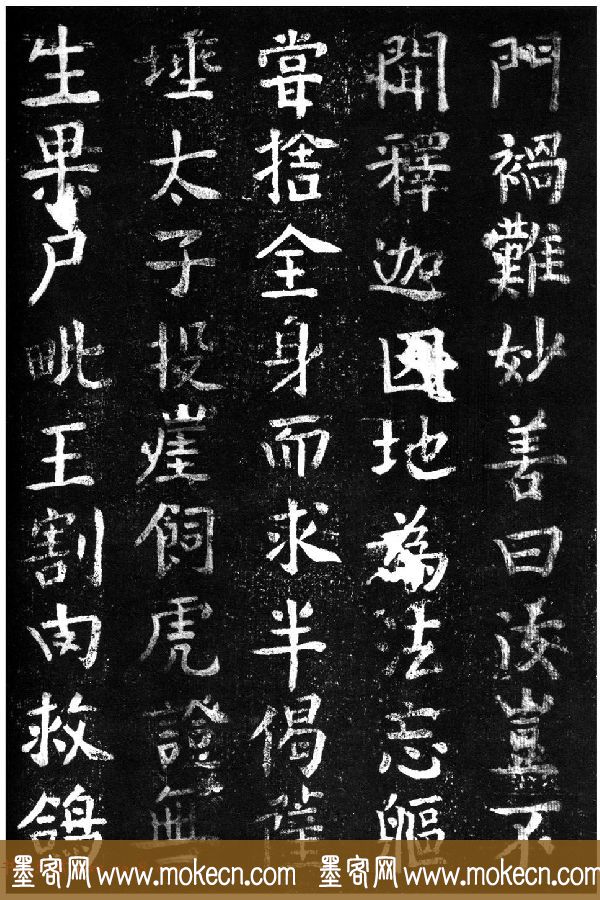 門禍難妙善曰汝豈不
聞釋迦因地為法忘軀
甞捨全身而求半偈薩
埵太子投崖飼虎證無
生果尸毗王割肉救鴿
墨客网 www.mokecn.com 墨客网 www.mokecn.com